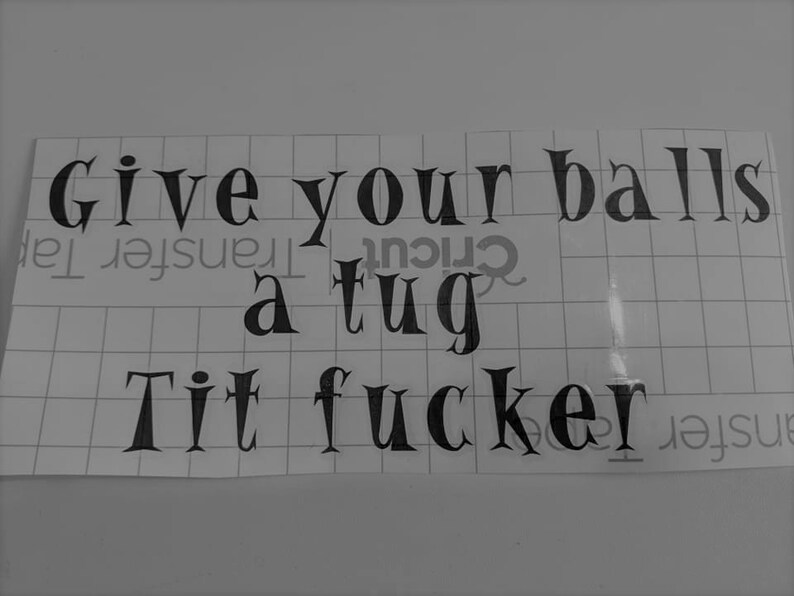 Give your balls
Transfer Tap
Cricut
a tug
Tit fucker
ansfer Tape